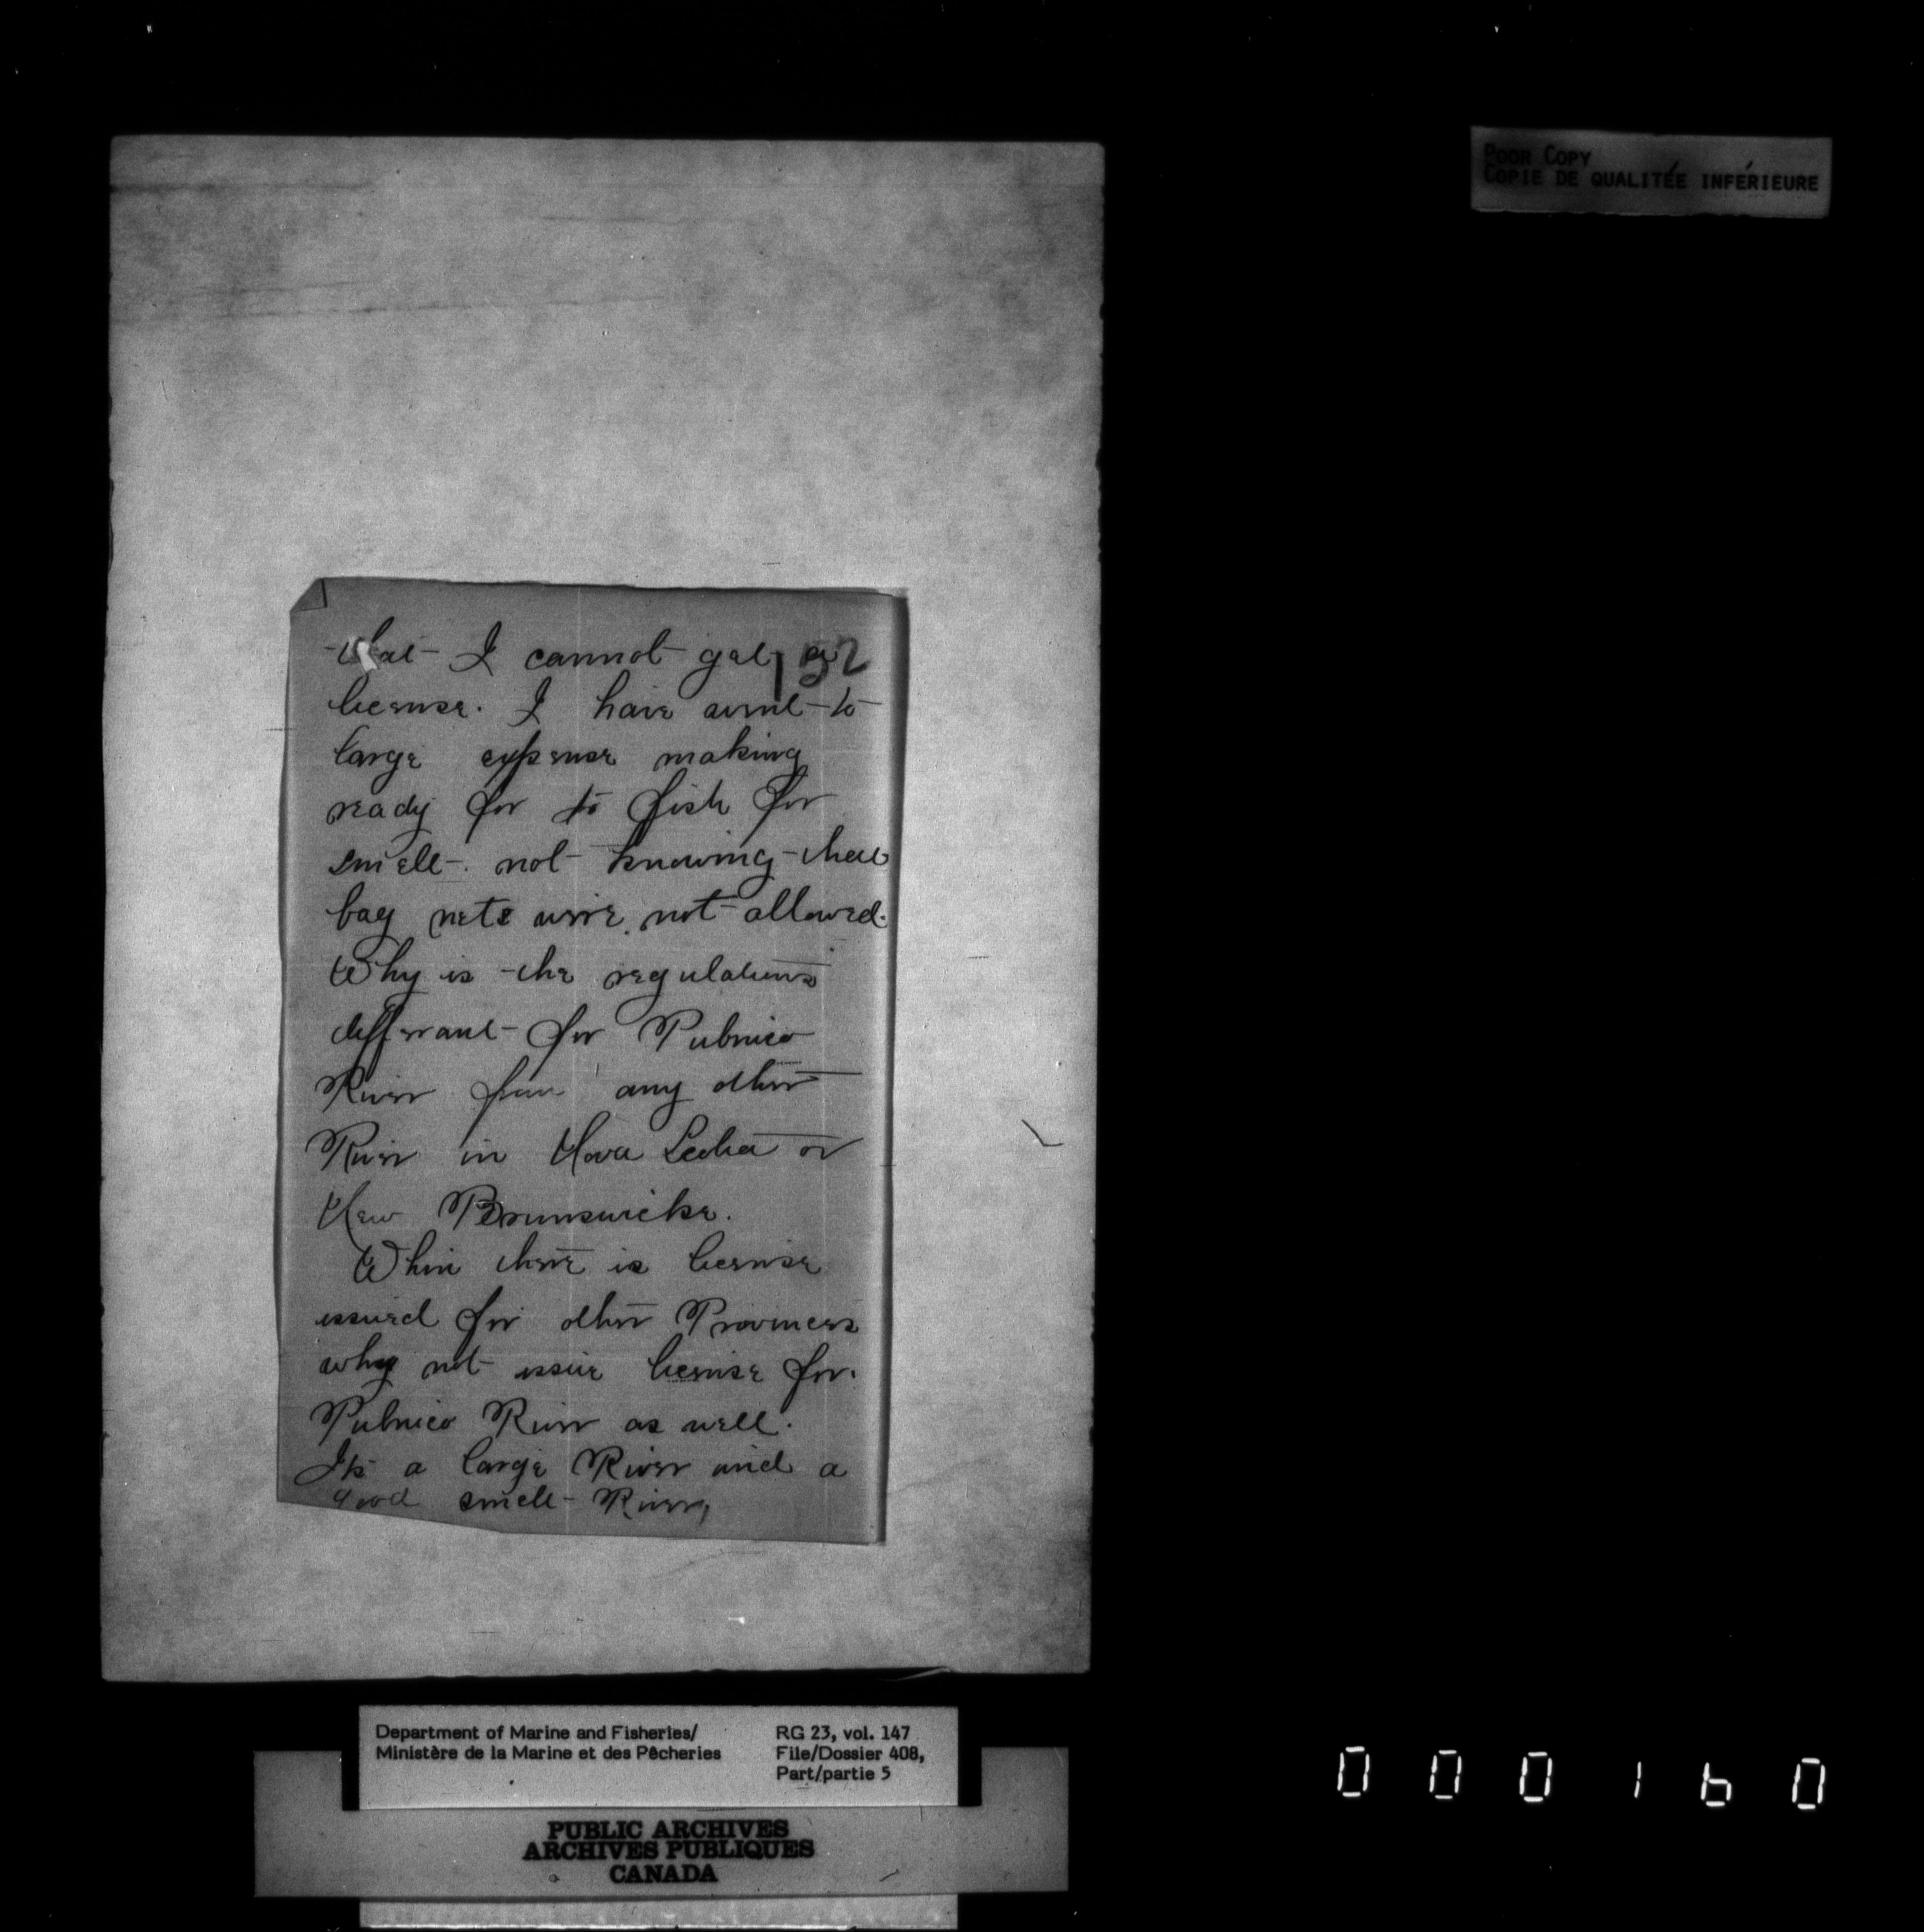 POOR COPY
COPIE DE QUALITÉE INFÉRIEURE
that I cannot get a
152
licence. I have went to
large expense making
ready for to fish for
smelt. not knowing that
bag nets were not allowed.
Why is the regulations
differant for Pubnico
River from any other
River in Nova Scotia or
New Brunswicke.
When there is license
issued for other Provinces
why not issue license for.
Pubnico River as well.
Its a large River and a
good smelt River,
Department of Marine and Fisheries/
Ministère de la Marine et des Pêcheries
RG 23, vol. 147
File/Dossier 408,
Part/partie 5
PUBLIC ARCHIVES
ARCHIVES PUBLIQUES
CANADA
000160